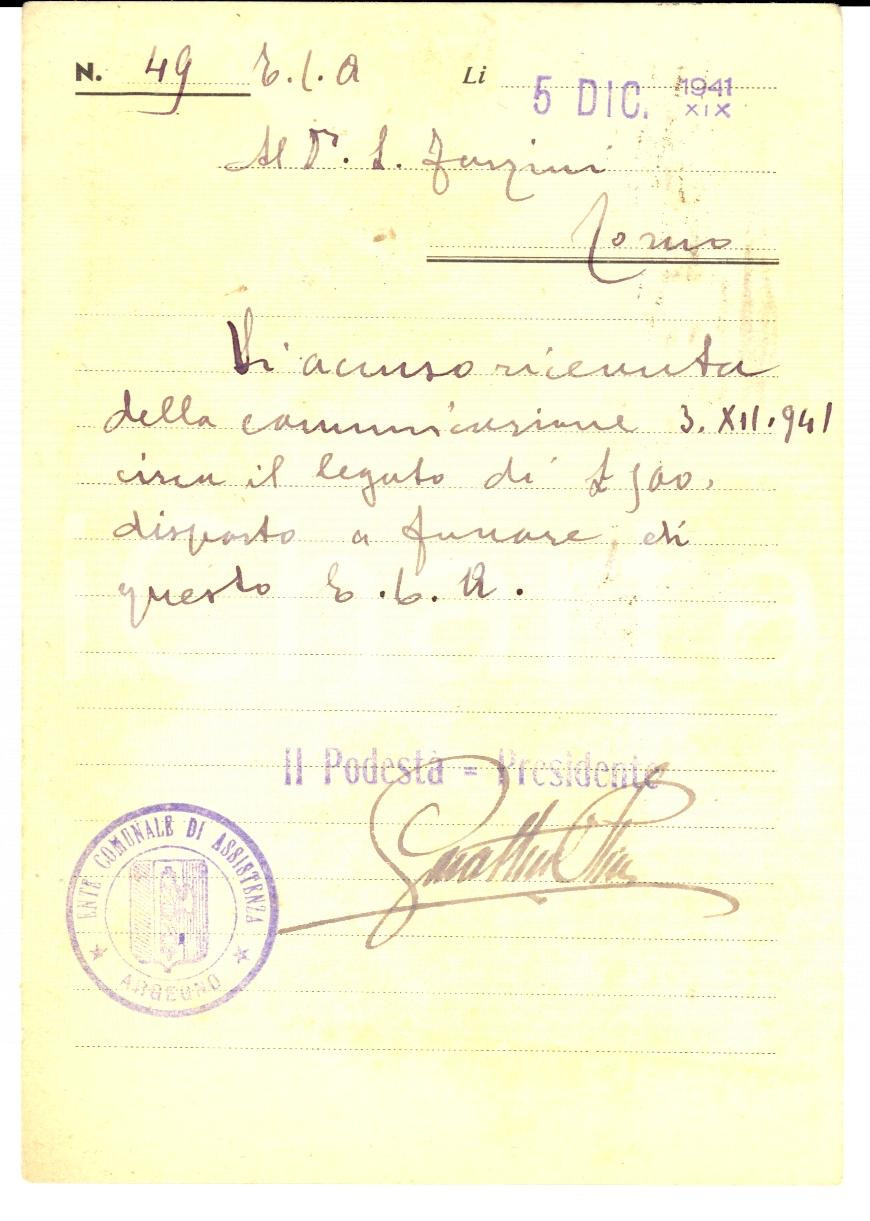 N. 49 E.C.A Li 5 DIC. 1941
XIX
Al Dr. L.
Como
Si accuso ricevuta
della comunicazione 3.XII.941
circa il legato di £ 500.
disposto a favore di
questo E.C.A.
Il Podestà = Presidente
ENTE COMUNALE DI ASSISTENZA
ARGEGNO